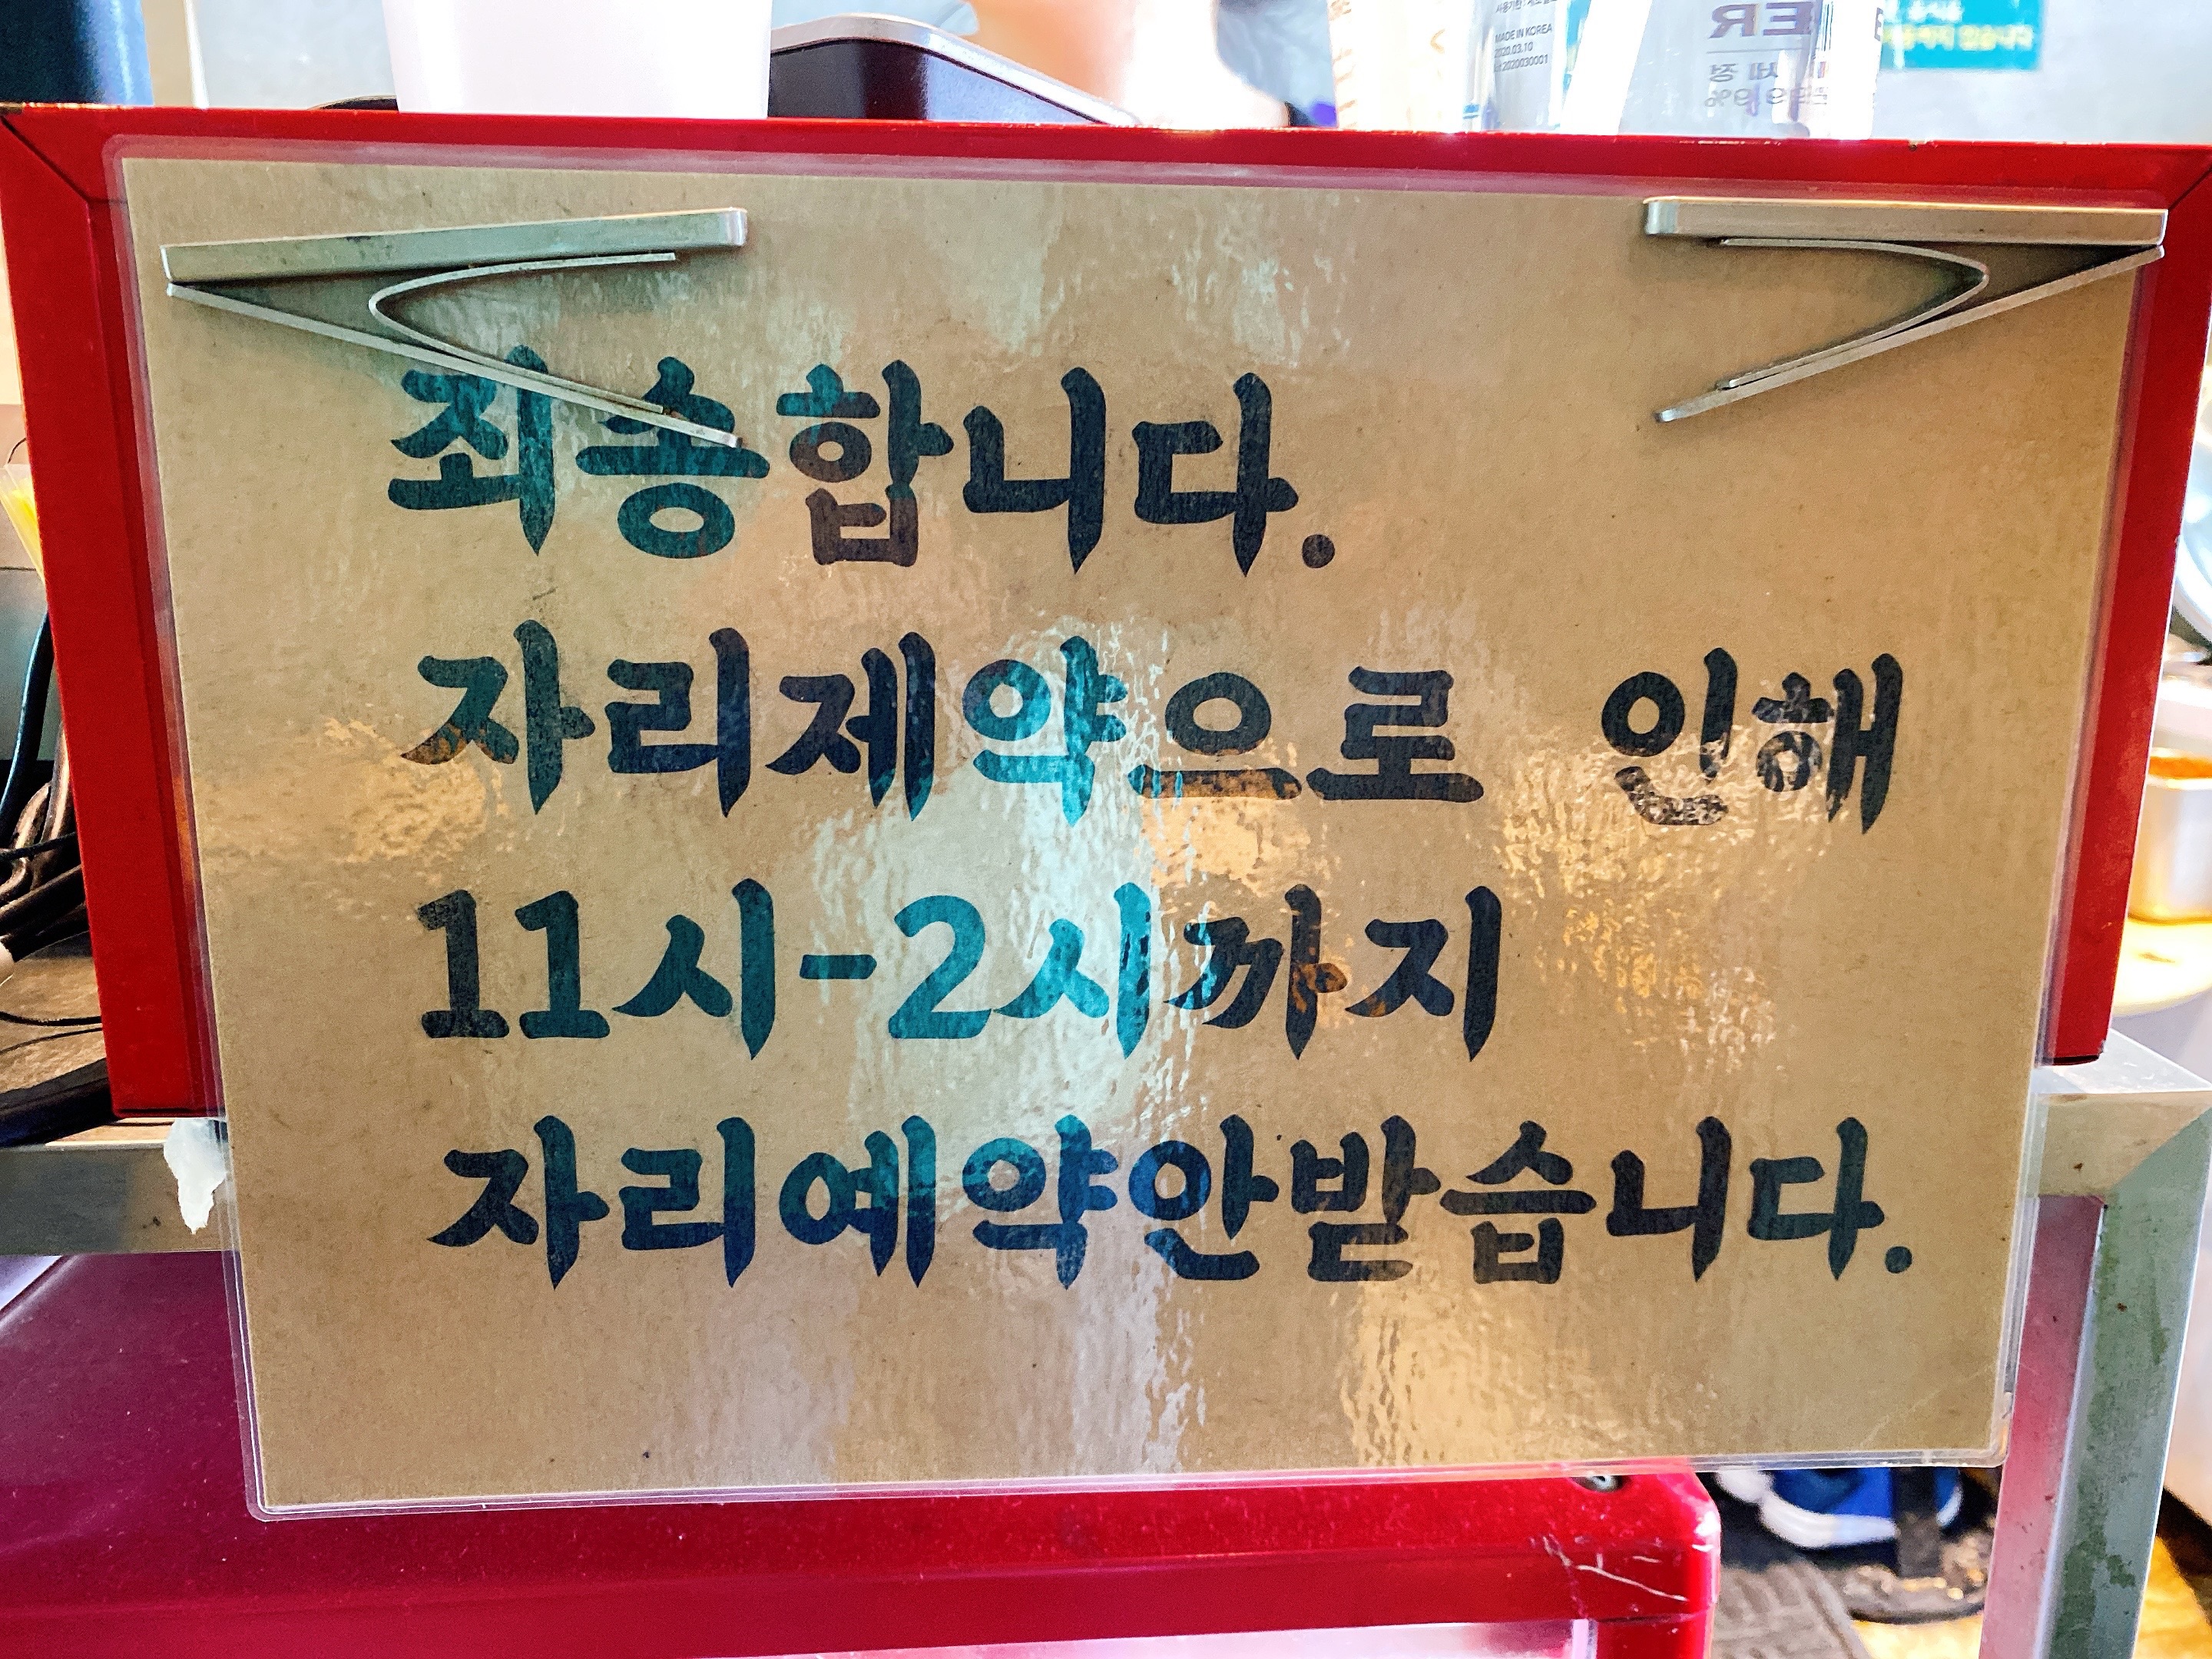 MADE IN KOREA
2020.03.10
죄송합니다.
자리제약으로 인해
11시-2시까지
자리예약안받습니다.